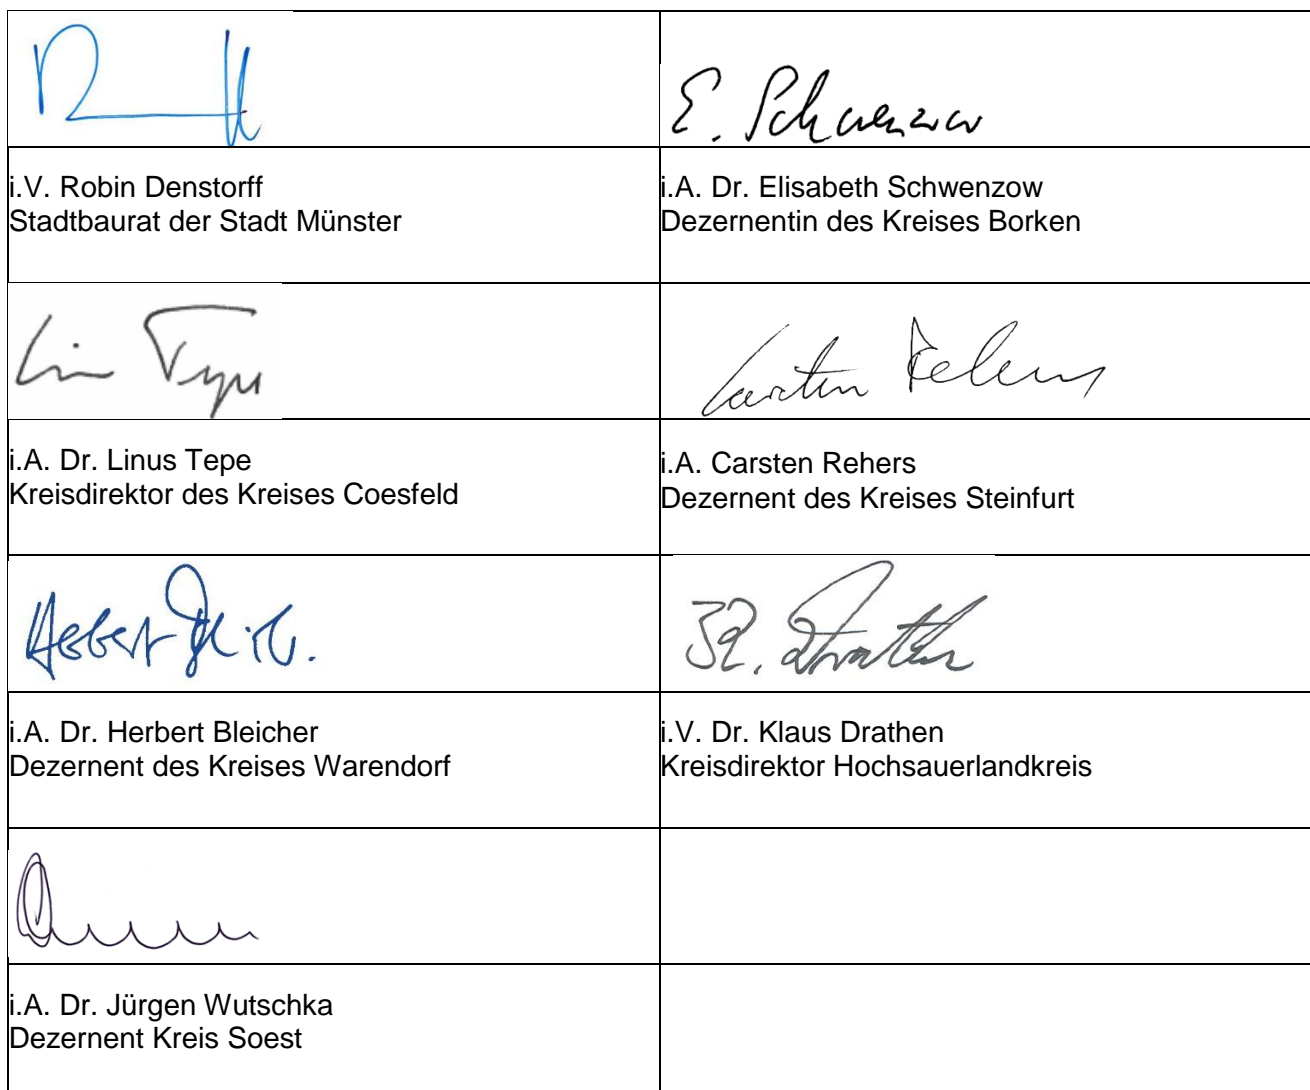 E. Schwenzow
i.V. Robin Denstorff
Stadtbaurat der Stadt Münster
i.A. Dr. Elisabeth Schwenzow
Dezernentin des Kreises Borken
Carsten Rehers
i.A. Dr. Linus Tepe
Kreisdirektor des Kreises Coesfeld
i.A. Carsten Rehers
Dezernent des Kreises Steinfurt
i.A. Dr. Herbert Bleicher
Dezernent des Kreises Warendorf
i.V. Dr. Klaus Drathen
Kreisdirektor Hochsauerlandkreis
i.A. Dr. Jürgen Wutschka
Dezernent Kreis Soest